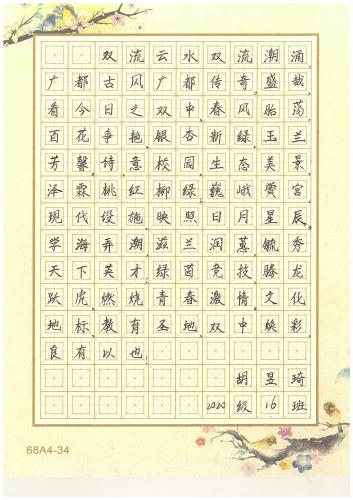 双流云水双流潮涌
广都古风广都传奇盛哉
看今日之双中春风骀荡
百花争艳银杏新绿玉兰
芳馨诗意校园生态美景
泽霖桃红柳绿巍峨黉宫
现代设施映照日月星辰
学海弄潮滋兰润蕙毓秀
天下英才绿茵竞技腾龙
跃虎燃烧青春激情文化
地标教育圣地双中焕彩
良有以也
胡昱琦
2020级16班
68A4-34